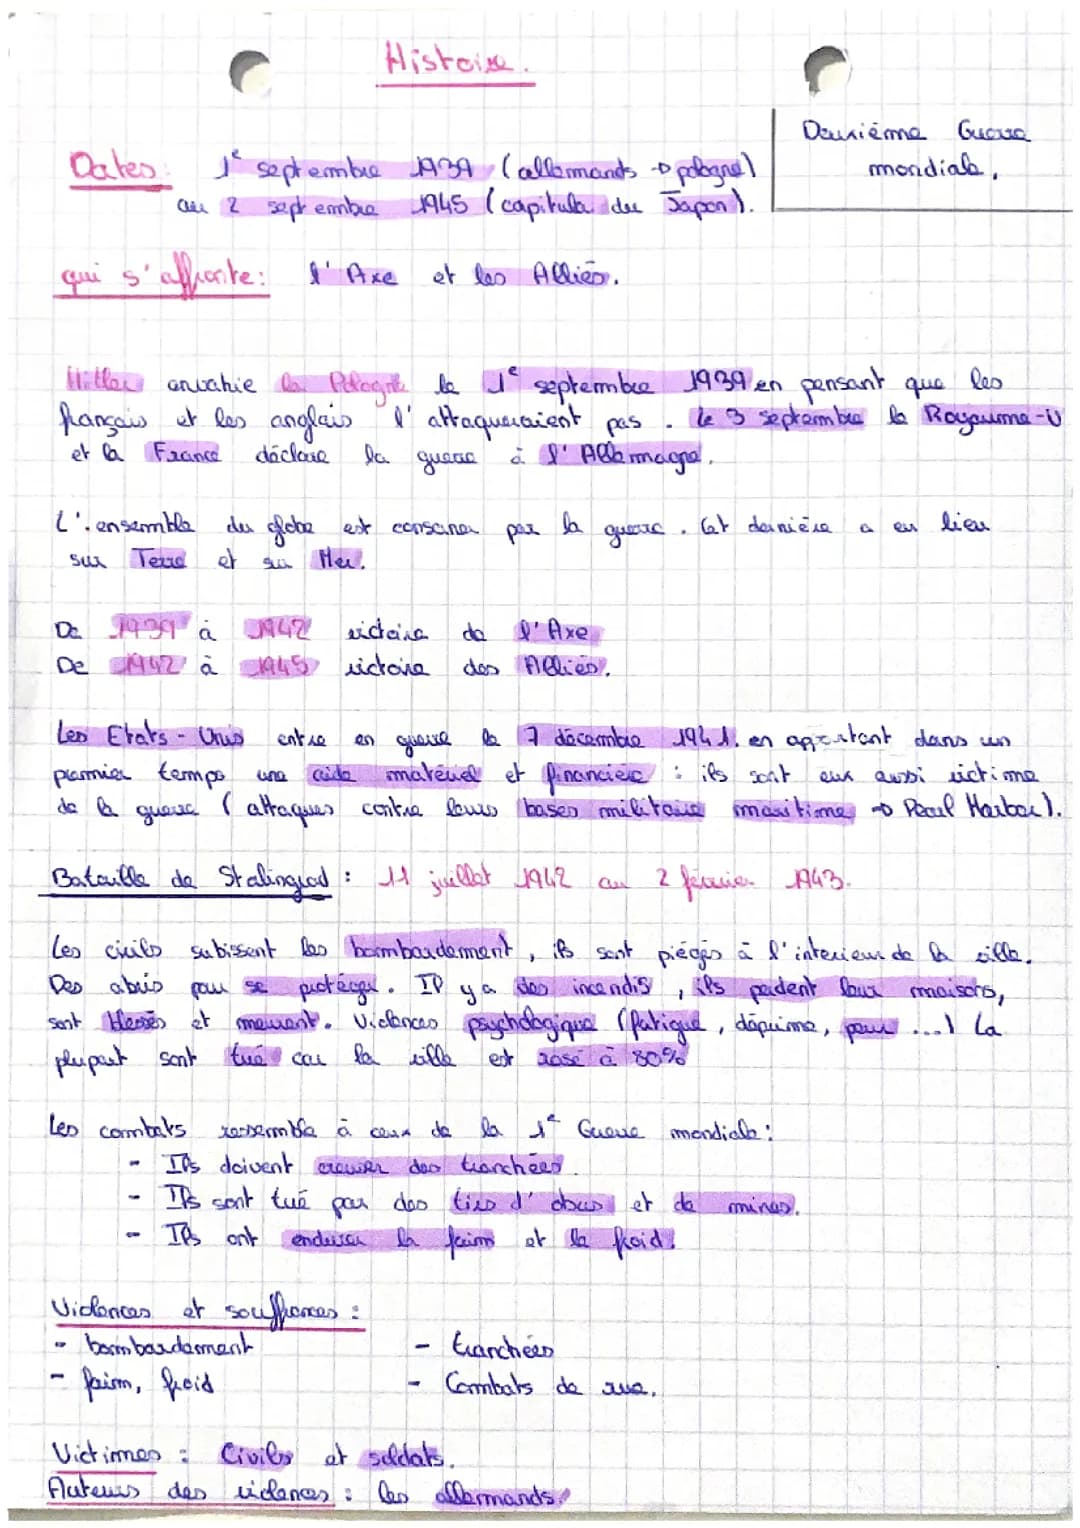 Histoire.
Deuxième Guerre
mondiale.
Dates: 1e septembre 1939 (allemands → pologne)
au 2 septembre 1945 (capitula du Japon).
qui s'affronte: l'Axe et les Alliés.
Hitler envahie la Pologne le 1e septembre 1939 en pensant que les
français et les anglais l'attaqueraient pas. Le 3 septembre le Royaume-U
et la France déclare la guerre à l'Allemagne.
L'ensemble du globe est consciner par la guerre. Cet dernière a eu lieu
sur Terre et sur Mer.
De 1939 à 1942 victoire de l'Axe
De 1942 à 1945 victoire des Alliés.
Les Etats-Unis entre en guerre le 7 décembre 1941. en apportant dans un
premier temps une aide matériel et financière : ils sont eux aussi victime
de la guerre (attaques contre leurs bases militaire maritime → Pearl Harbor).
Bataille de Stalingrad : 11 juillet 1942 au 2 février 1943.
Les civils subissent les bombardement, ils sont piégés à l'interieur de la ville.
Des abris pour se protéger. Il y a des incendis, ils perdent leur maisons,
sont blessés et meurent. Violences psychologique (fatigue, déprime, peur ...) La
plupart sont tué car la ville est rasé à 80%
Les combats ressemble à ceux de la 1e Guerre mondiale :
- Ils doivent creuser des tranchées.
- Ils sont tué par des tirs d'obus et de mines.
- Ils ont endurer la faim et le froid.
Violences et souffrances :
- bombardement
- faim, froid
- tranchées
- Combats de rue.
Victimes : Civils et soldats.
Auteurs des violences : les allemands.